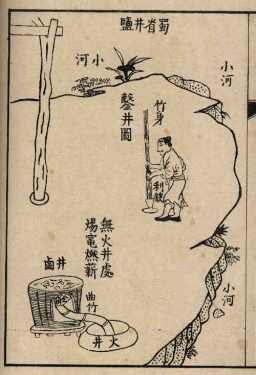 蜀省井鹽
小河
小河
竹身
鑿井圖
利鉄
無火井處
煬竈燃薪
井鹵
曲竹
火井
小河